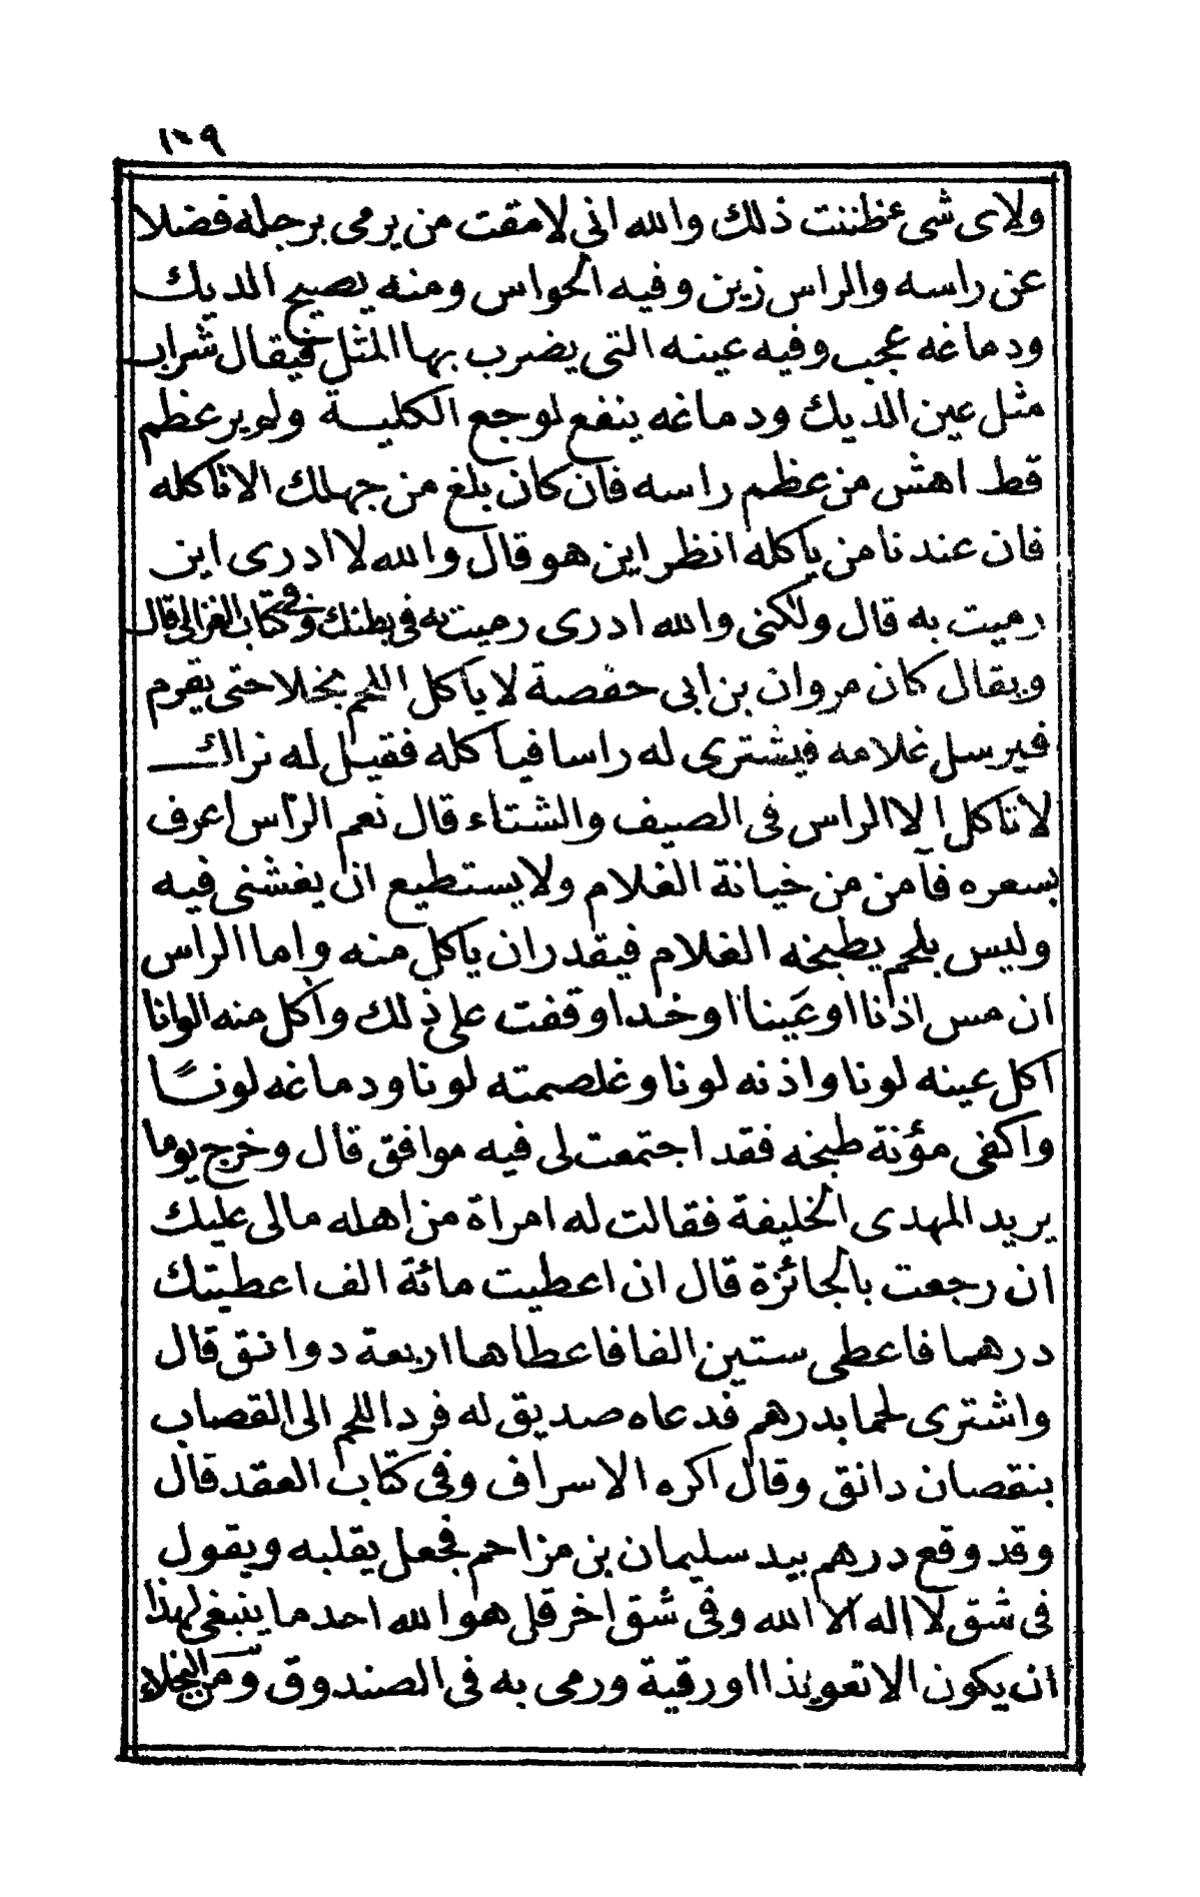 ١٠٩
ولاى شى عظننت ذلك والله انى لامقت من يرمى برجله فضلا
عن راسه والراس زين وفيه الحواس ومنه يصيح الديك
ودماغه عجب وفيه عينه التى يضرب بها المثل فيقال شراب
مثل عين الديك ودماغه ينفع لوجع الكلية ولم ير عظم
قط اهش من عظم راسه فان كان بلغ من جهلك الا تاكله
فان عندنا من ياكله انظر اين هو قال والله لا ادرى اين
رميت به قال ولكنى والله ادرى رميت به فى بطنك وفى كتاب الغزالى قال
ويقال كان مروان بن ابى حفصة لا ياكل اللحم بخلا حتى يقرم
فيرسل غلامه فيشترى له راسا فياكله فقيل له نراك
لا تاكل الا الراس فى الصيف والشتاء قال نعم الراس اعرف
بسعره فآمن من خيانة الغلام ولا يستطيع ان يغشنى فيه
وليس بلحم يطبخه الغلام فيقدر ان ياكل منه واما الراس
ان مس اذنا او عينا او خدا وقفت على ذلك وآكل منه الوانا
آكل عينه لونا واذنه لونا وغلصمته لونا ودماغه لونًا
واكفى مؤنة طبخه فقد اجتمعت لى فيه موافق قال وخرج يوما
يريد المهدى الخليفة فقالت له امراة من اهله مالى عليك
ان رجعت بالجائزة قال ان اعطيت مائة الف اعطيتك
درهما فاعطى ستين الفا فاعطاها اربعة دوانق قال
واشترى لحما بدرهم فدعاه صديق له فرد اللحم الى القصاب
بنقصان دانق وقال اكره الاسراف وفى كتاب العقد قال
وقد وقع درهم بيد سليمان بن مزاحم فجعل يقلبه ويقول
فى شق لا اله الا الله وفى شق اخر قل هو الله احد ما ينبغى لهذا
ان يكون الا تعويذا اورقية ورمى به فى الصندوق ومن البخلاء